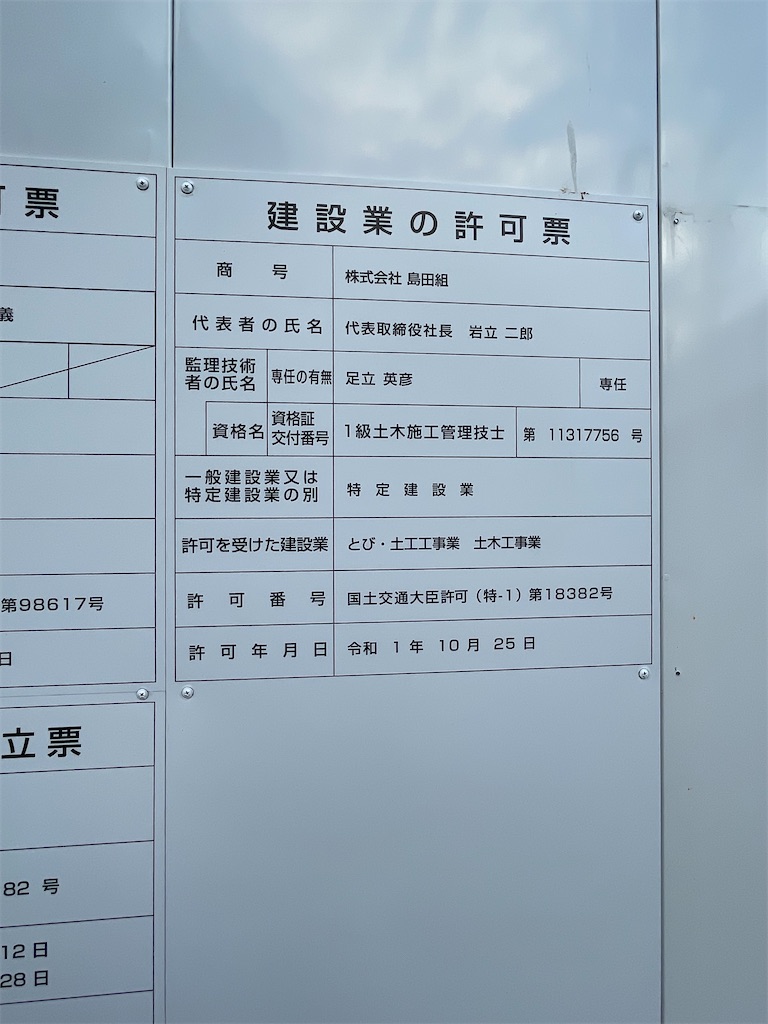 可票
義
第98617号
日
立票
82 号
12 日
28 日
建設業の許可票
商号 株式会社 島田組
代表者の氏名 代表取締役社長 岩立 二郎
監理技術
者の氏名
専任の有無 足立 英彦 専任
資格名
資格証
交付番号
1級土木施工管理技士 第 11317756 号
一般建設業又は
特定建設業の別
特定建設業
許可を受けた建設業 とび・土工工事業 土木工事業
許可番号 国土交通大臣許可(特-1)第18382号
許可年月日 令和 1 年 10 月 25 日